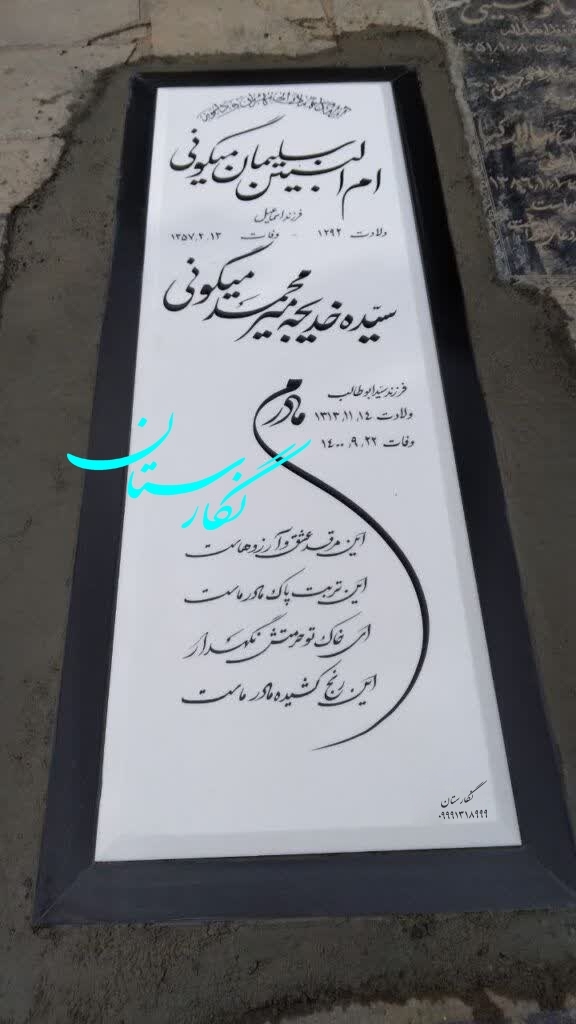 ام البنین سلیمان میگونی
فرزند اسماعیل
ولادت ۱۲۹۲ - وفات ۱۳۵۷,۲,۱۳
سیّده خدیجه میرمحمد میگونی
فرزند سیّد ابوطالب
ولادت ۱۳۱۳,۱۱,۱۴
وفات ۱۴۰۰,۹,۲۲
مادرم
این مرقد عشق و آرزوهاست
این تربت پاک مادر ماست
ای خاک تو حرمتش نگهدار
این رنج کشیده مادر ماست
نگارستان
۰۹۹۹۱۳۱۸۹۹۹
نگارستان